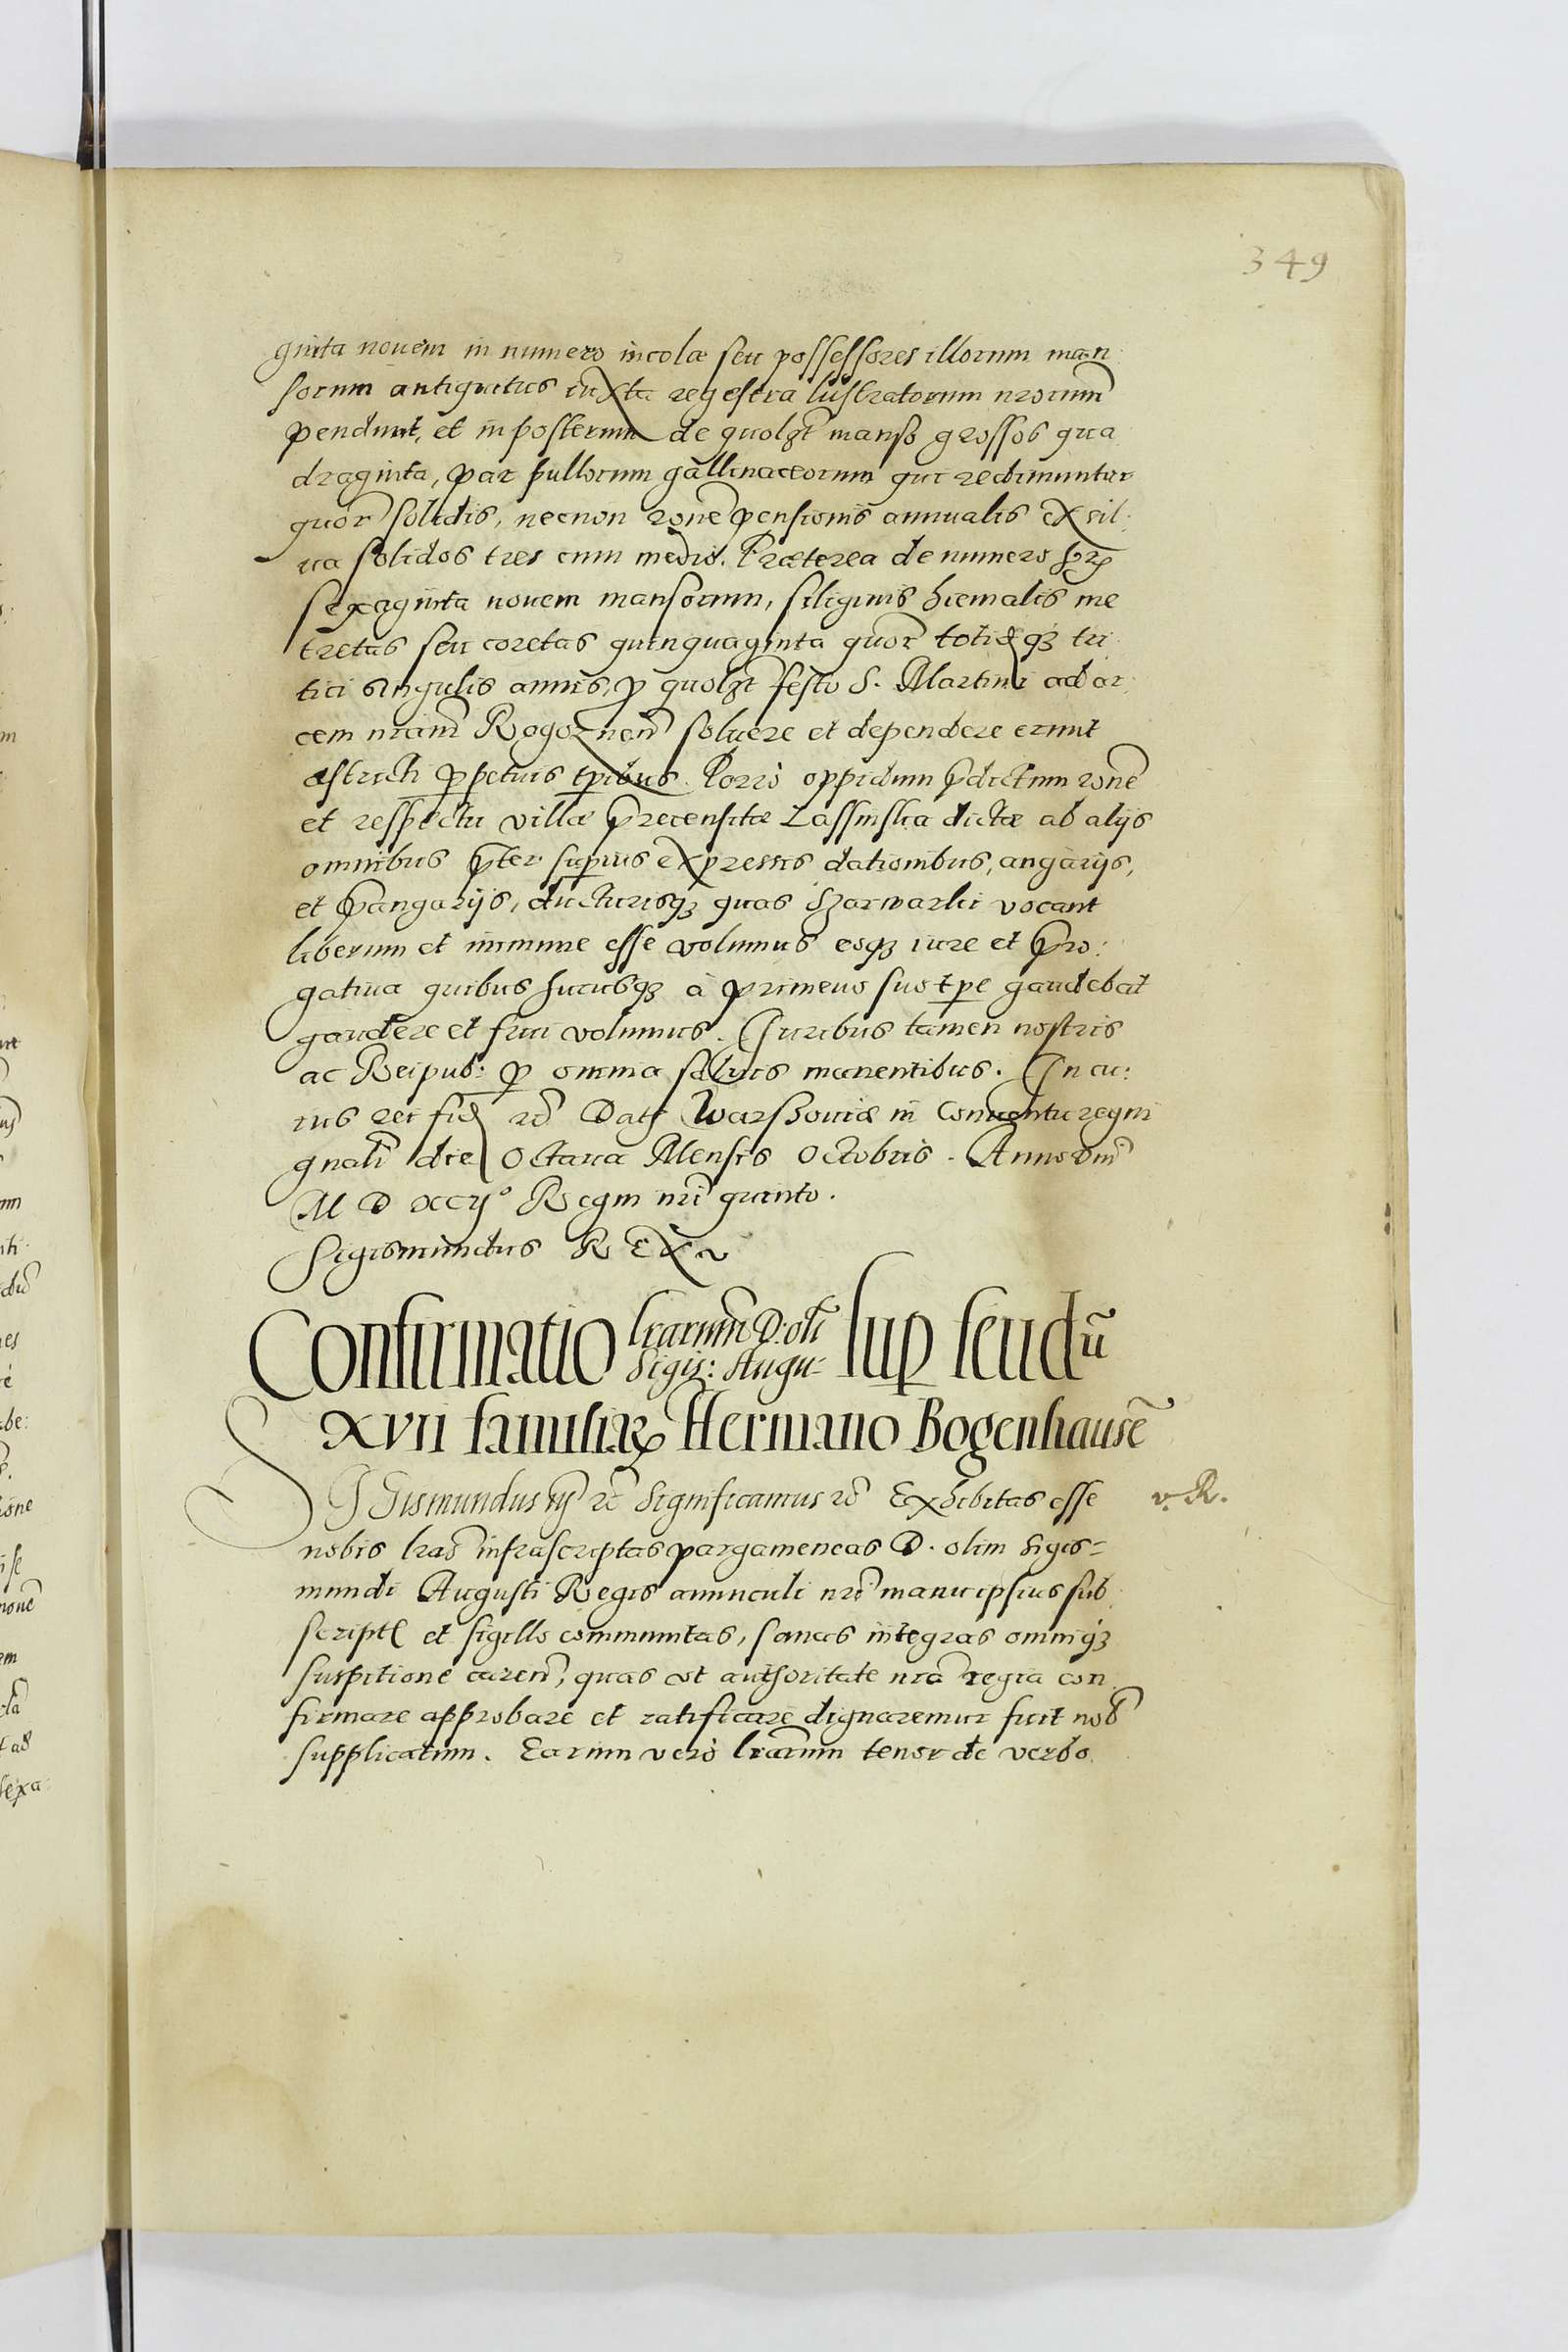 349
ginta nouem in numero incolæ seu possessores illorum man
sorum antiquitus iuxta regestra lustratorum nrorum
pendunt, et in posterum de quolzt manso grossos qua
draginta, par pullorum gallinaceorum qui redimuntur
quor solidis, necnon rone pensionis annualis ex sil:
ua solidos tres cum medio. Præterea de numero
sexaginta nouem mansorum, siliginis hiemalis me
tretas seu coretas quinquaginta quor totidqz tri
tici singulis annis, p quolzt festo S. Martini ad ar
cem nram Rogoznen soluere et dependere erunt
astricti ppetuis tpibus. Porro oppidum pdictum rone
et respectu villæ precensitæ Lassinska dictæ ab alijs
omnibus pter superius expressis dationibus, angarijs,
et pangarijs, ducturisqz quas szarwarki vocant
liberum et immune esse volumus eoqz iure et pro:
gatiua quibus hucusqz à primeuo suo tpe gaudebat
gaudere et frui volumus. Juribus tamen nostris
ac Reipub: p omnia saluis manentibus. In cu:
ius rei fid rc Dat Warssouiæ in Conuentu regni
gnali die Octaua Mensis Octobris. Anno dni
M D XCIJ° Regni nri quinto.
Sigismundus REX
Confirmatio lrarum D: oli Sigis: Augu- sup feudū
XVII familiar Hermano Bogenhausē
SIGismundus iij rc Significamus rc Exhibitas esse
v. R.
nobis lras infrascriptas pargameneas D. olim Sigis=
mundi Augusti Regis auunculi nri manu ipsius sub
script et sigillo communitas, sanas integras omniqz
suspitione caren, quas vt authoritate nra regia con
firmare approbare et ratificare dignaremur fuit nob
supplicatum. Earum vero lrarum tenor de verbo